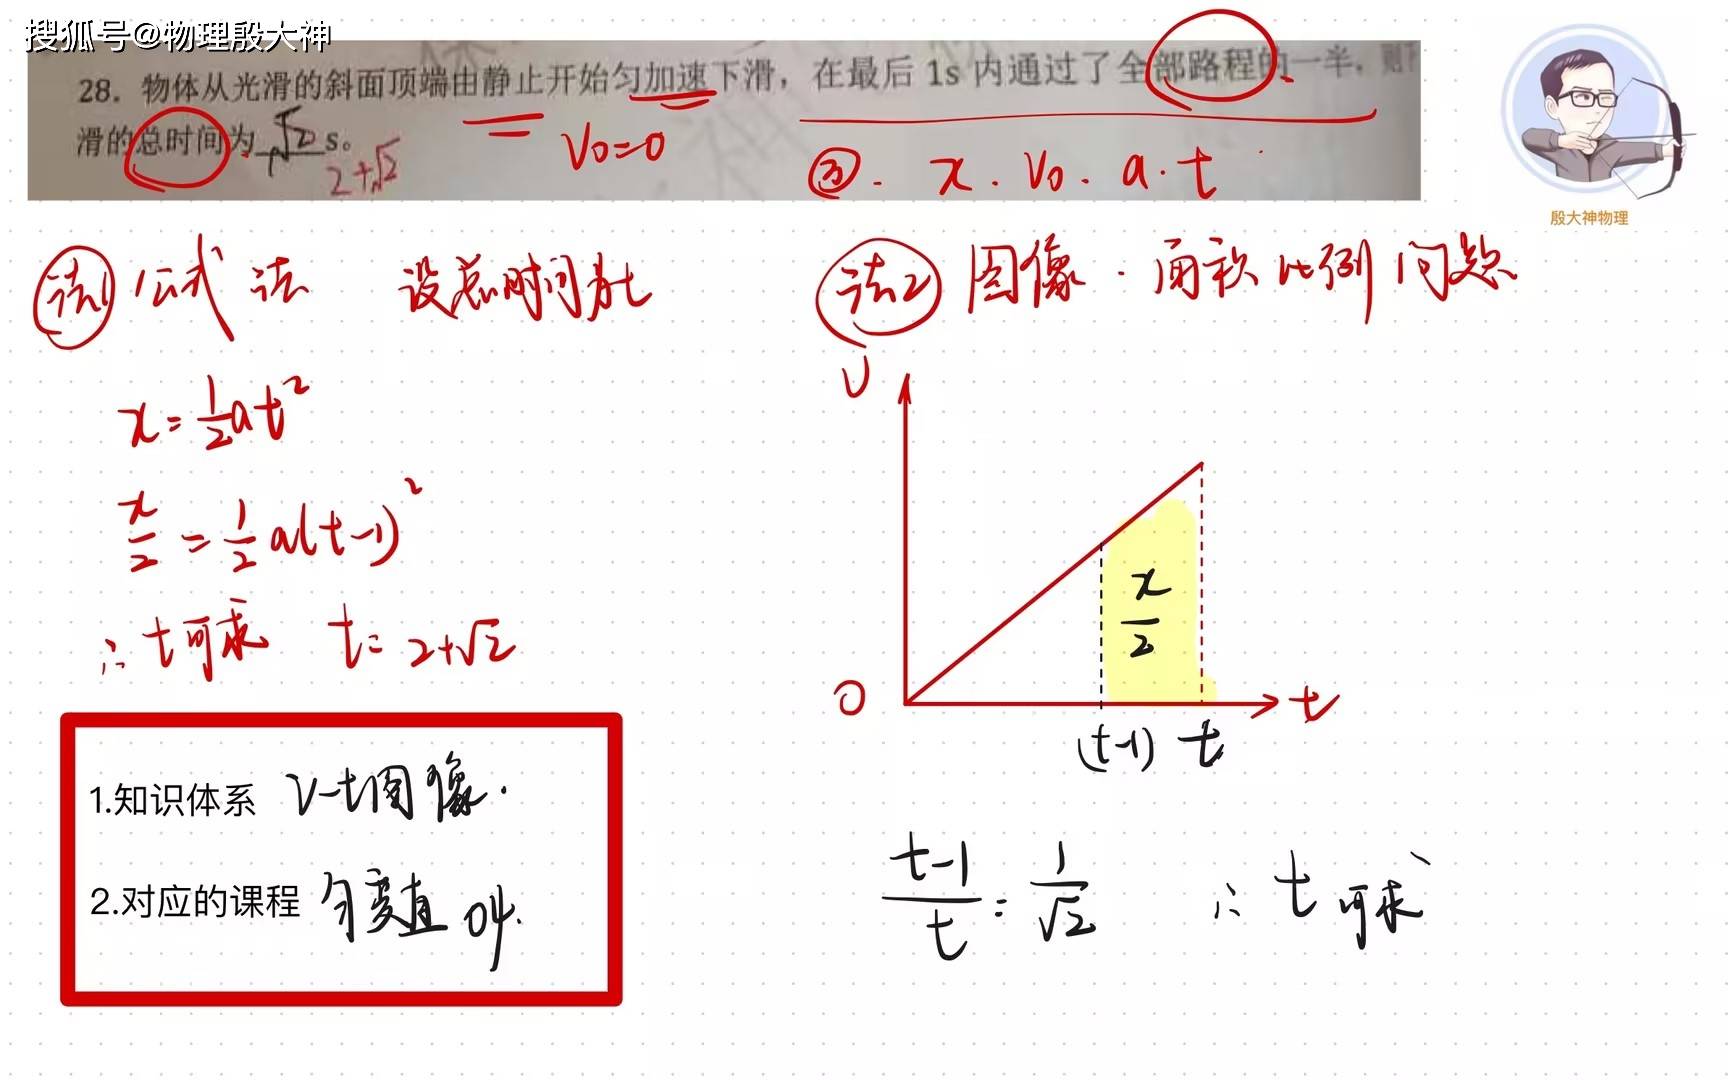 搜狐号@物理殷大神
28. 物体从光滑的斜面顶端由静止开始匀加速下滑，在最后 1s 内通过了全部路程的一半，则下
滑的总时间为 √2 s。
2+√2
V₀=0
x. V₀. a. t
殷大神物理
法1 公式法 设总时间为t
x=½at²
x/2=½a(t-1)²
∴ t可求 t=2+√2
1.知识体系 v-t图像.
2.对应的课程 匀变直 04.
法2 图像. 面积比例问题
v
x/2
0
t
(t-1) t
(t-1)/t=1/√2 ∴ t可求